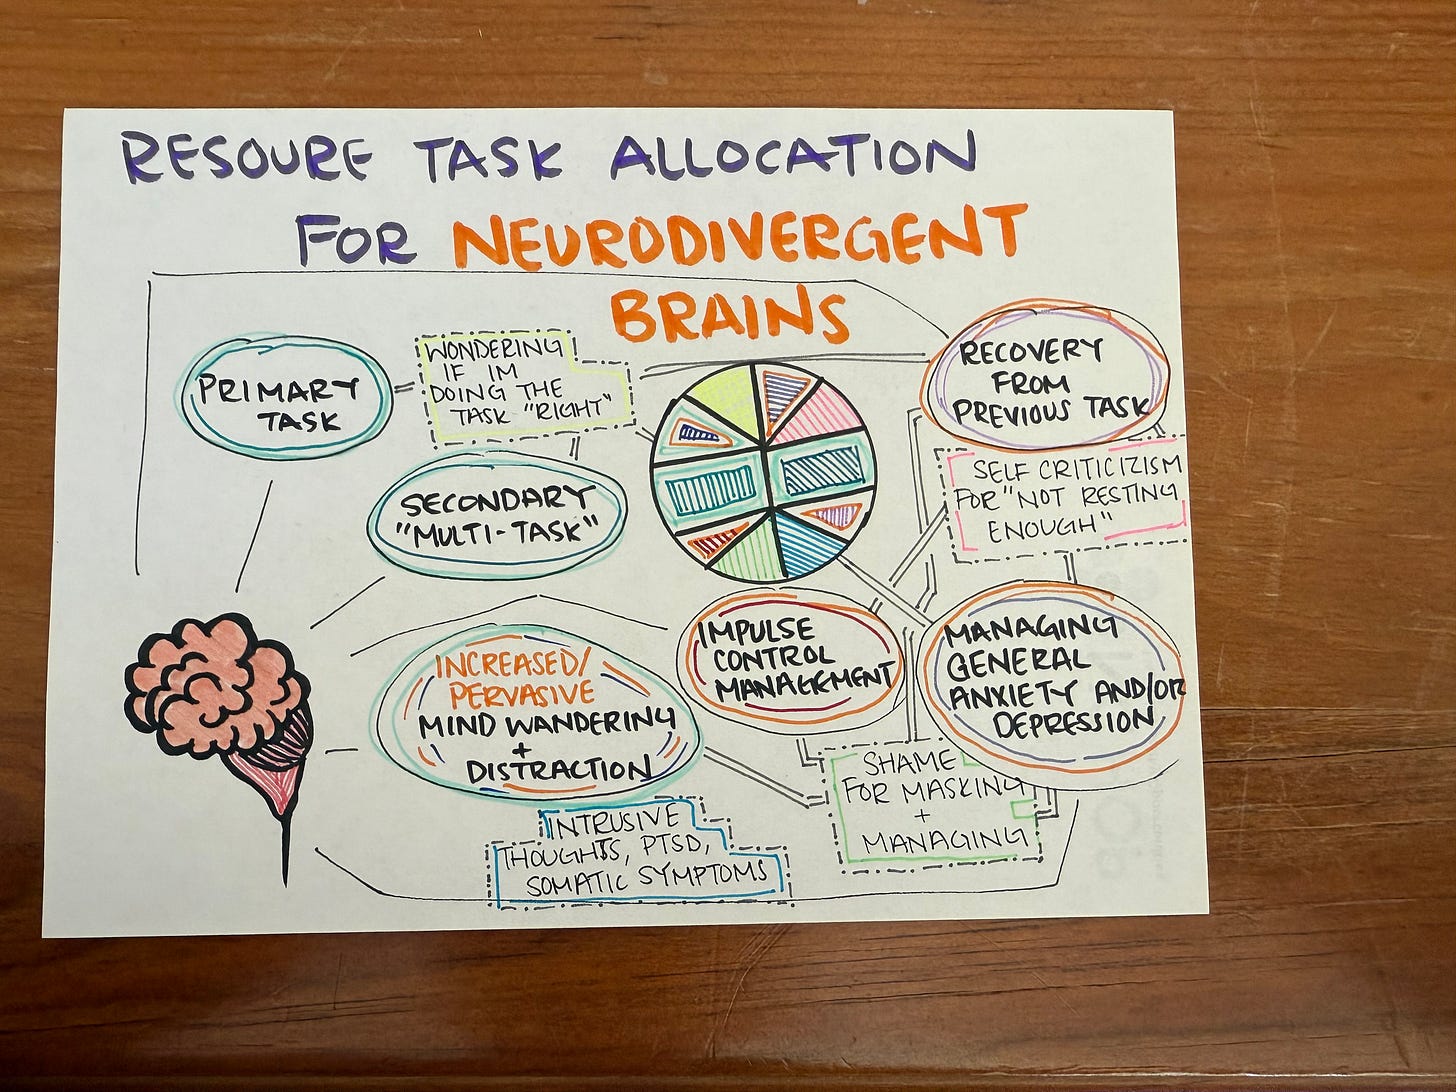 RESOURE TASK ALLOCATION
FOR NEURODIVERGENT
BRAINS
PRIMARY
TASK
WONDERING
IF IM
DOING THE
TASK "RIGHT"
SECONDARY
"MULTI-TASK"
RECOVERY
FROM
PREVIOUS TASK
SELF CRITICIZISM
FOR "NOT RESTING
ENOUGH"
INCREASED/
PERVASIVE
MIND WANDERING
+
DISTRACTION
IMPULSE
CONTROL
MANAGEMENT
MANAGING
GENERAL
ANXIETY AND/OR
DEPRESSION
INTRUSIVE
THOUGHTS, PTSD,
SOMATIC SYMPTOMS
SHAME
FOR MASKING
+
MANAGING